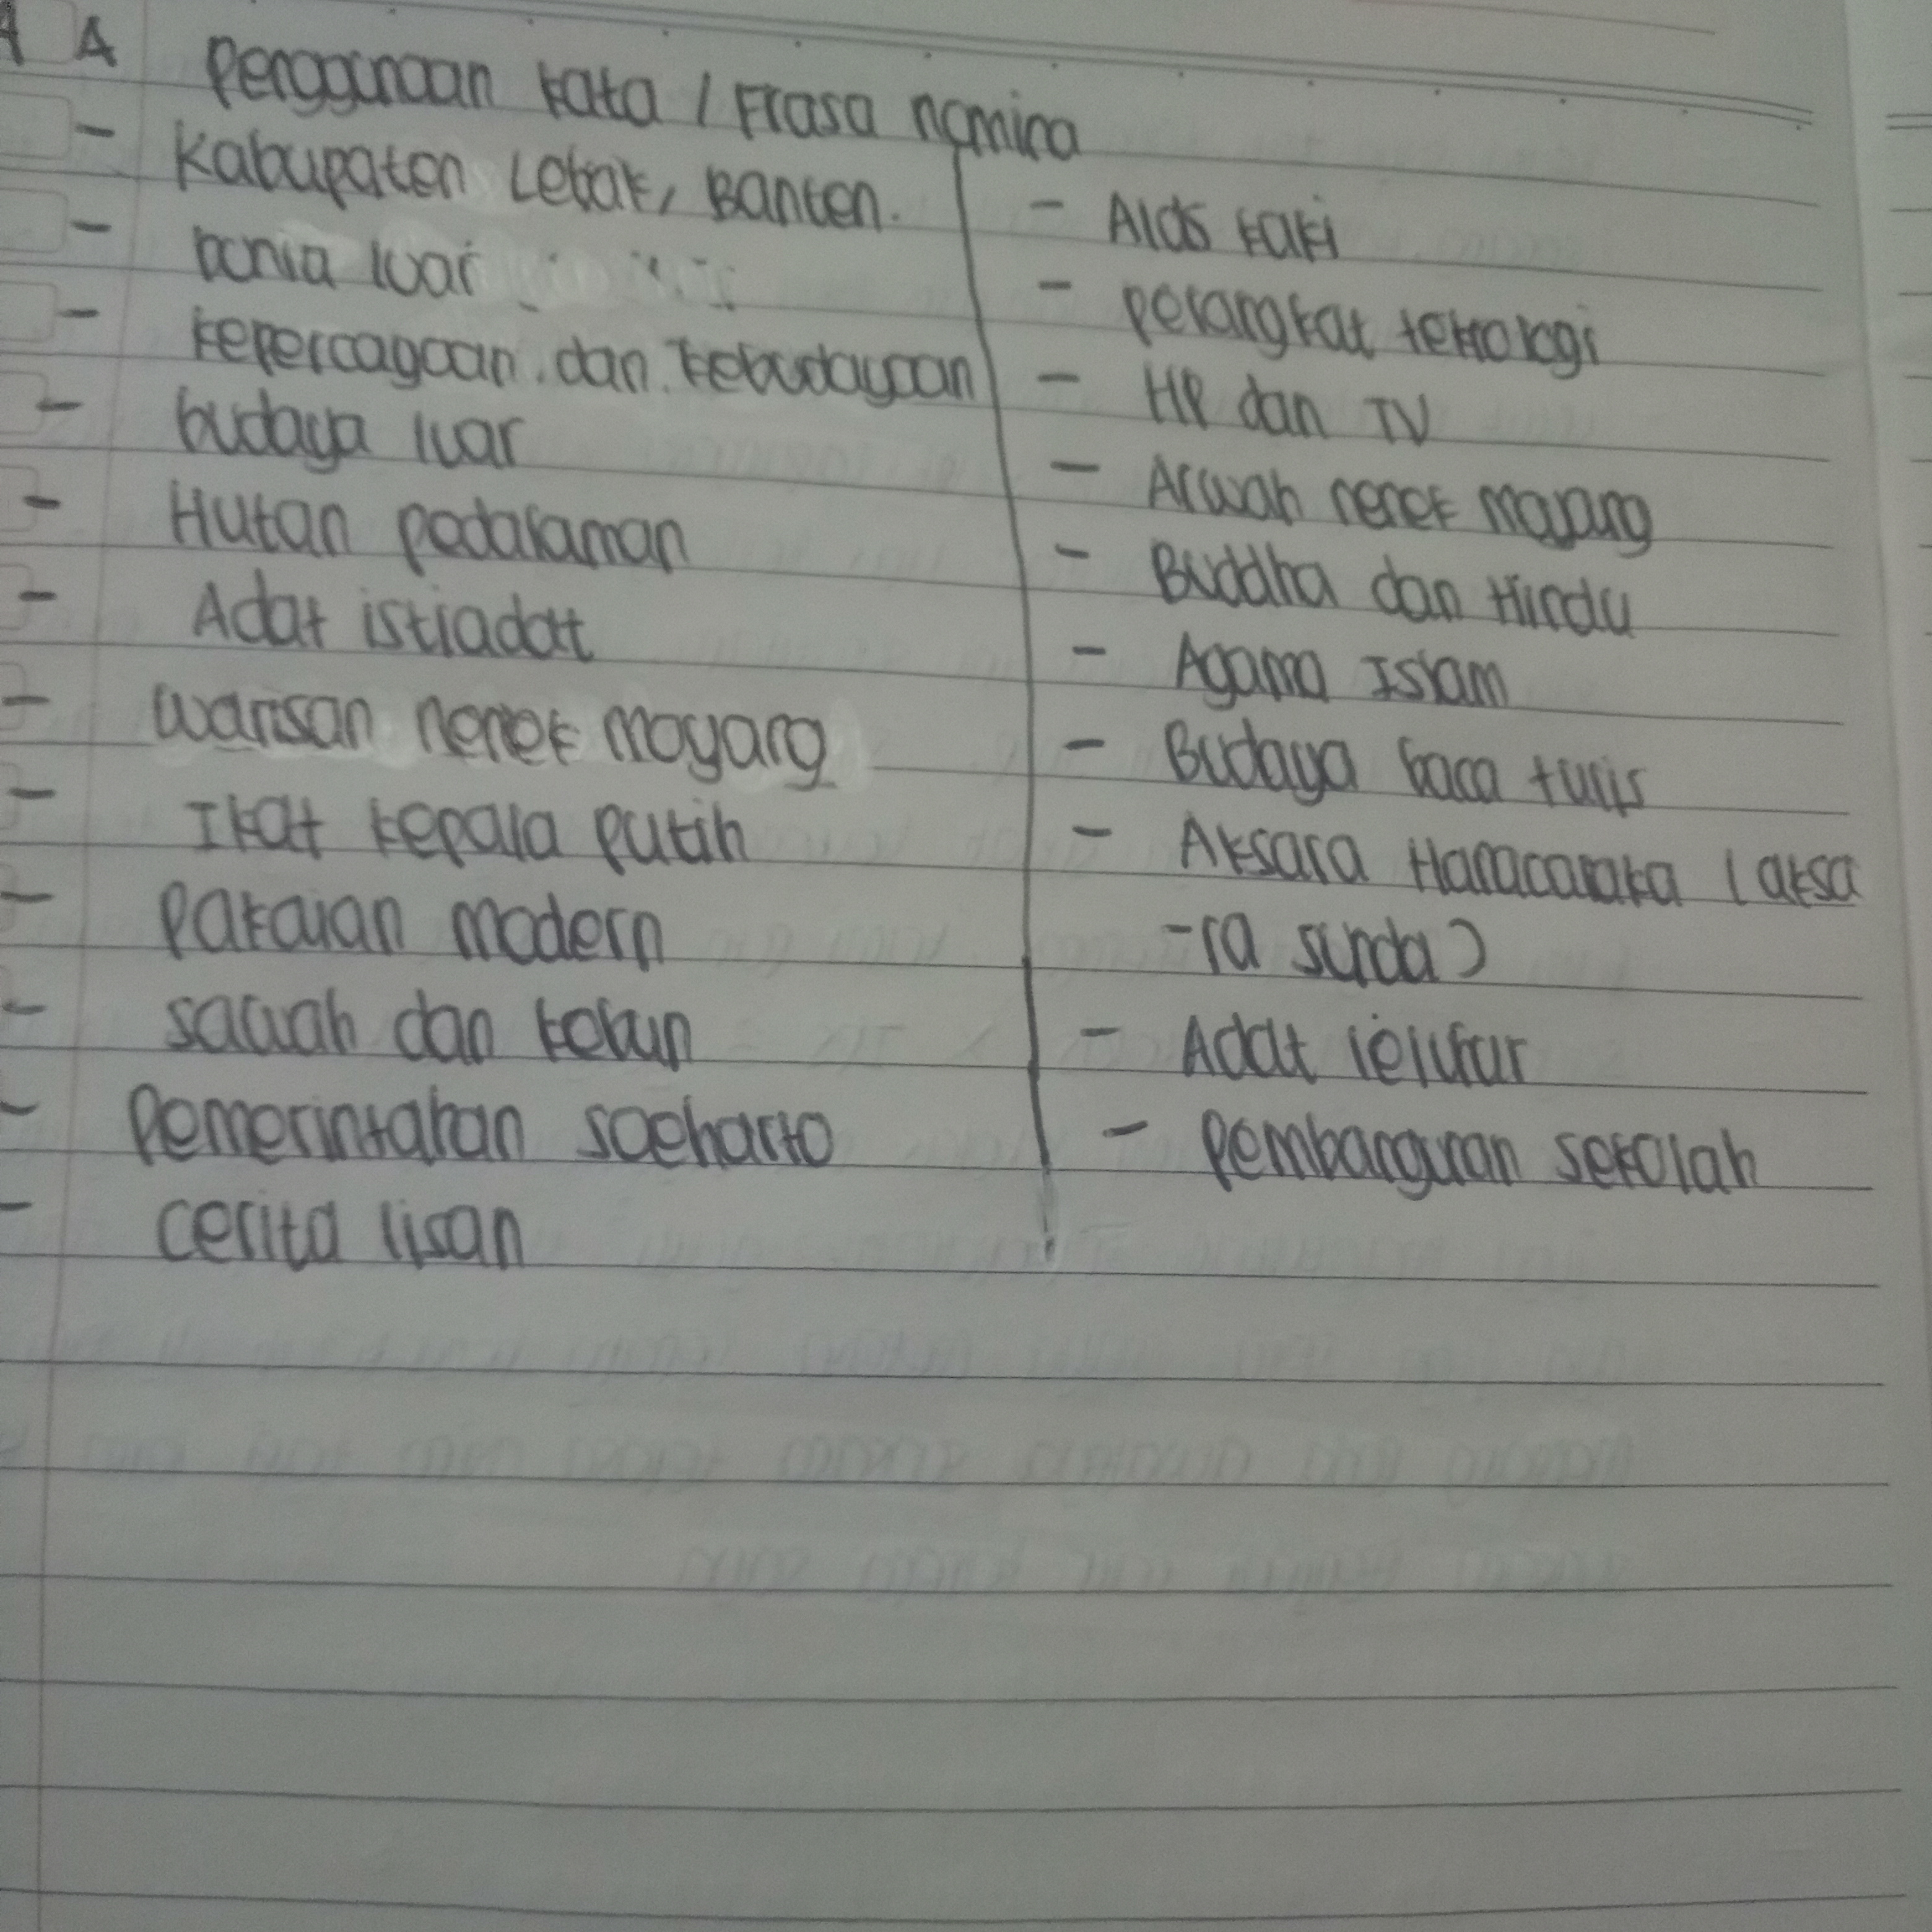 A Penggunaan kata / Frasa nomina
- Kabupaten Lebak, Banten.
- Dunia luar
- kepercayaan dan kebudayaan
- budaya luar
- Hutan pedalaman
- Adat istiadat
- warisan nenek moyang
- Ikat kepala putih
- Pakaian modern
- sawah dan kebun
- Pemerintahan soeharto
- cerita lisan
- Alas kaki
- perangkat teknologi
- HP dan TV
- Arwah nenek moyang
- Buddha dan Hindu
- Agama Islam
- Budaya baca tulis
- Aksara Hanacaraka (aksa
-ra sunda)
- Adat leluhur
- Pembangunan sekolah